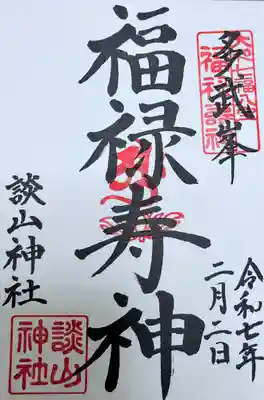 多武峯
福禄寿神
談山神社
談山
神社
令和七年
二月二日